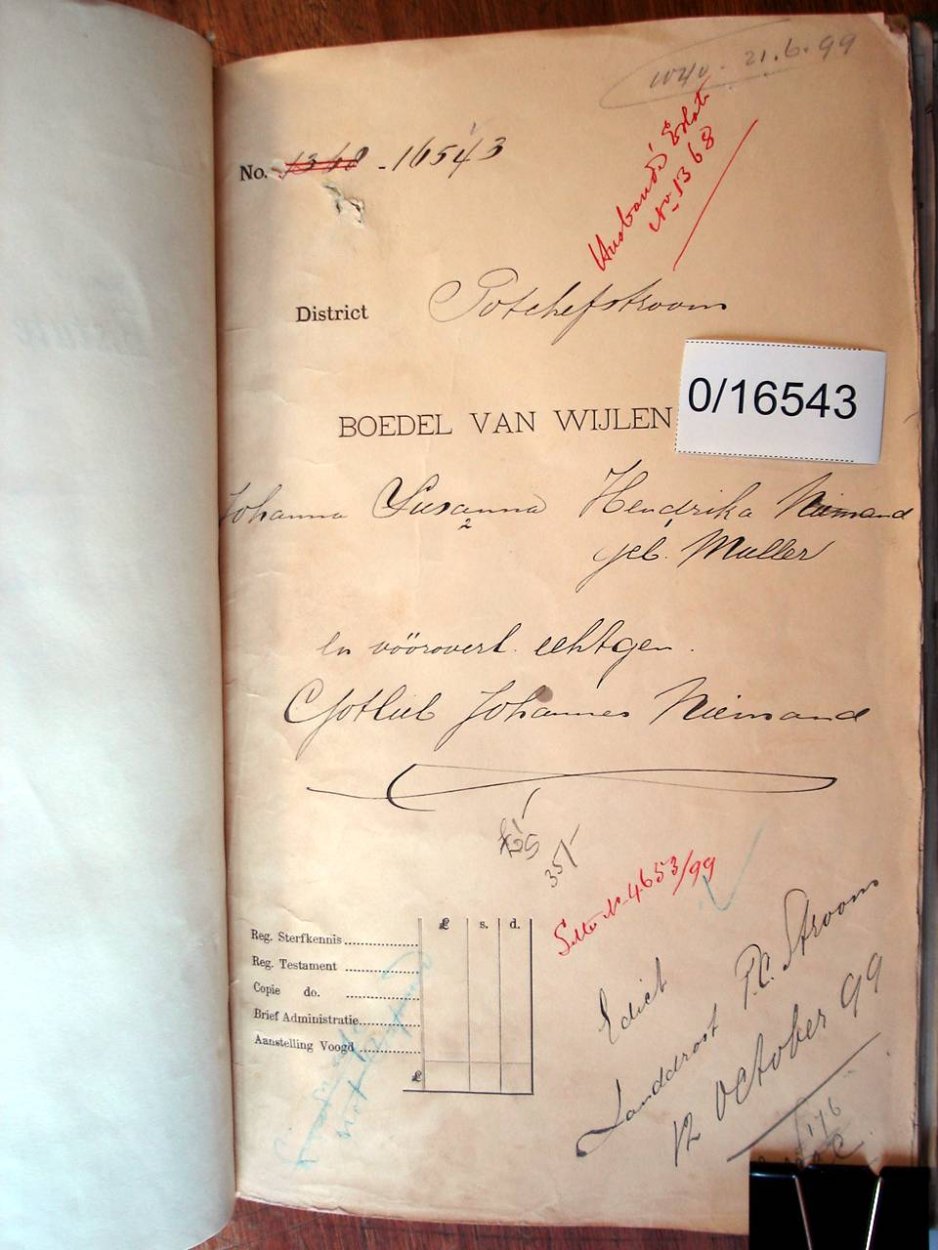 21.6.99
No. 1368 - 16543
Husband's Estate
No 1368
District Potchefstroom
0/16543
BOEDEL VAN WIJLEN
Johanna Susanna Hendrika Niemand
2
geb. Muller
en vöörovert. echtgen.
Gotlieb Johannes Niemand
35/-
4653/99
£ s. d.
Reg. Sterfkennis
Reg. Testament
Copie do.
Brief Administratie
Aanstelling Voogd
£
Edict
Landdrost P.C. Stroom
12 October 99